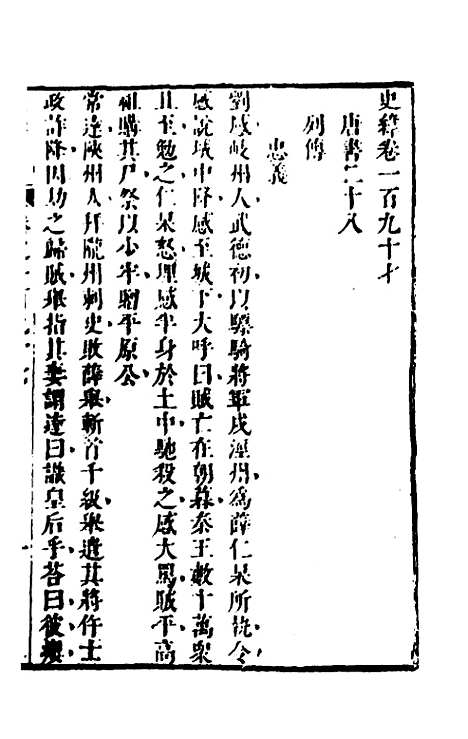 史緯卷一百九十七
唐書二十八
列傳
忠義
劉感岐州人武德初以驃騎將軍戍涇州爲薛仁杲所執令
感說城中降感至城下大呼曰賊亡在朝暮秦王數十萬衆
且至勉之仁杲怒埋感半身於土中馳殺之感大罵賊平高
祖購其尸祭以少牢贈平原公
常達陝州人拜隴州刺史敗薛舉斬首千級舉遣其將仵士
政詐降因劫之歸賊舉指其妻謂達曰識皇后乎荅曰彼癭